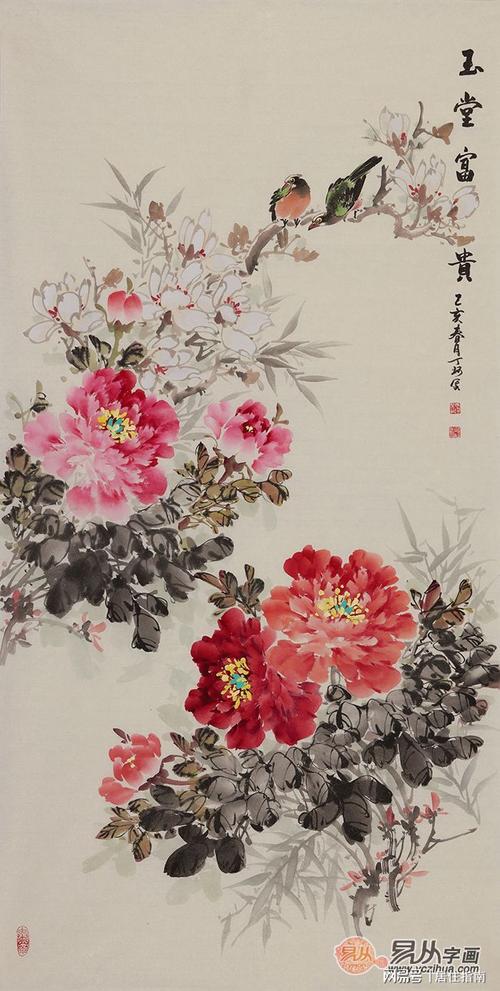 玉堂富貴
己亥春月丁珂写
易从字画
www.yczihua.com
网易号 | 居住指南